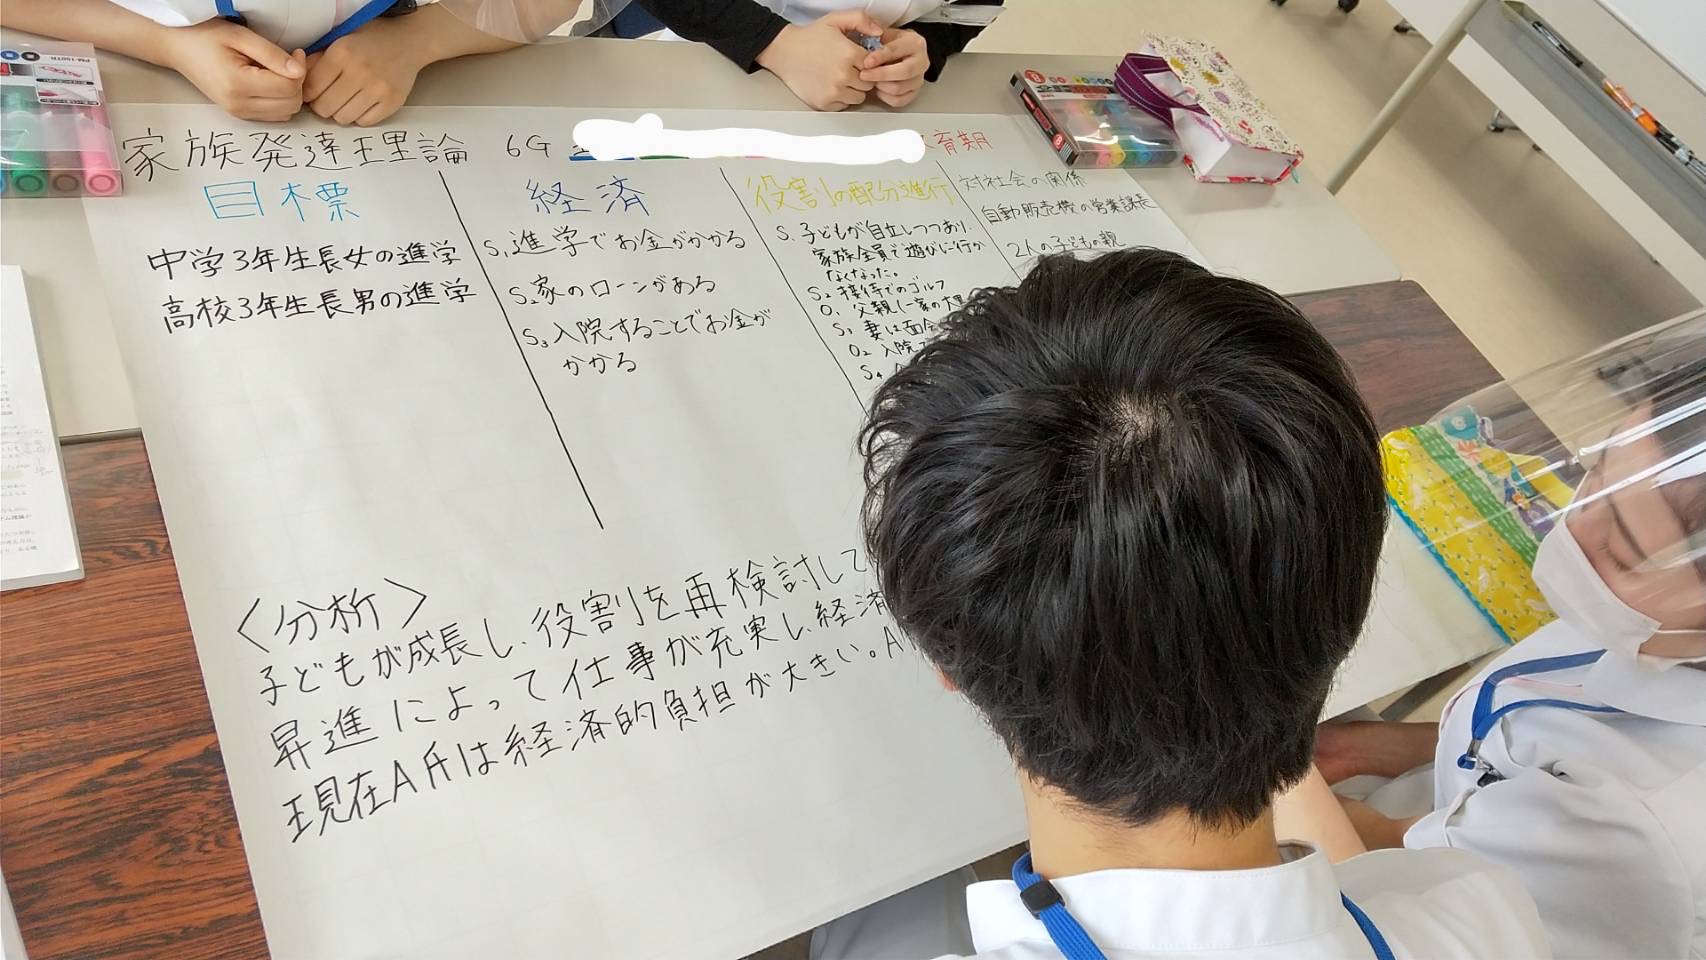 家族発達理論 6G 教育期
目標
中学3年生長女の進学
高校3年生長男の進学
経済
S₁進学でお金がかかる
S₂家のローンがある
S₃入院することでお金が
かかる
役割の配分進行
S₁子どもが自立しつつあり、
家族全員で遊びに行か
なくなった。
S₂接待でのゴルフ
O₁父親(一家の大黒
S₃妻は面会
O₂入院
S₄
対社会の関係
自動販売機の営業課長
2人の子どもの親
〈分析〉
子どもが成長し、役割を再検討して
昇進によって仕事が充実し、経済
現在A氏は経済的負担が大きい。A